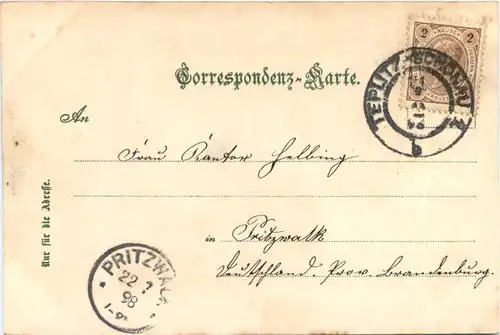 2 KREUZER 2
TEPLITZ-SCHÖNAU
b
Correspondenz-Karte.
An
Frau Kantor Helbing
in Pritzwalk
Deutschland. Prov. Brandenburg.
Nur für die Adresse.
* PRITZWALK
22 7
98